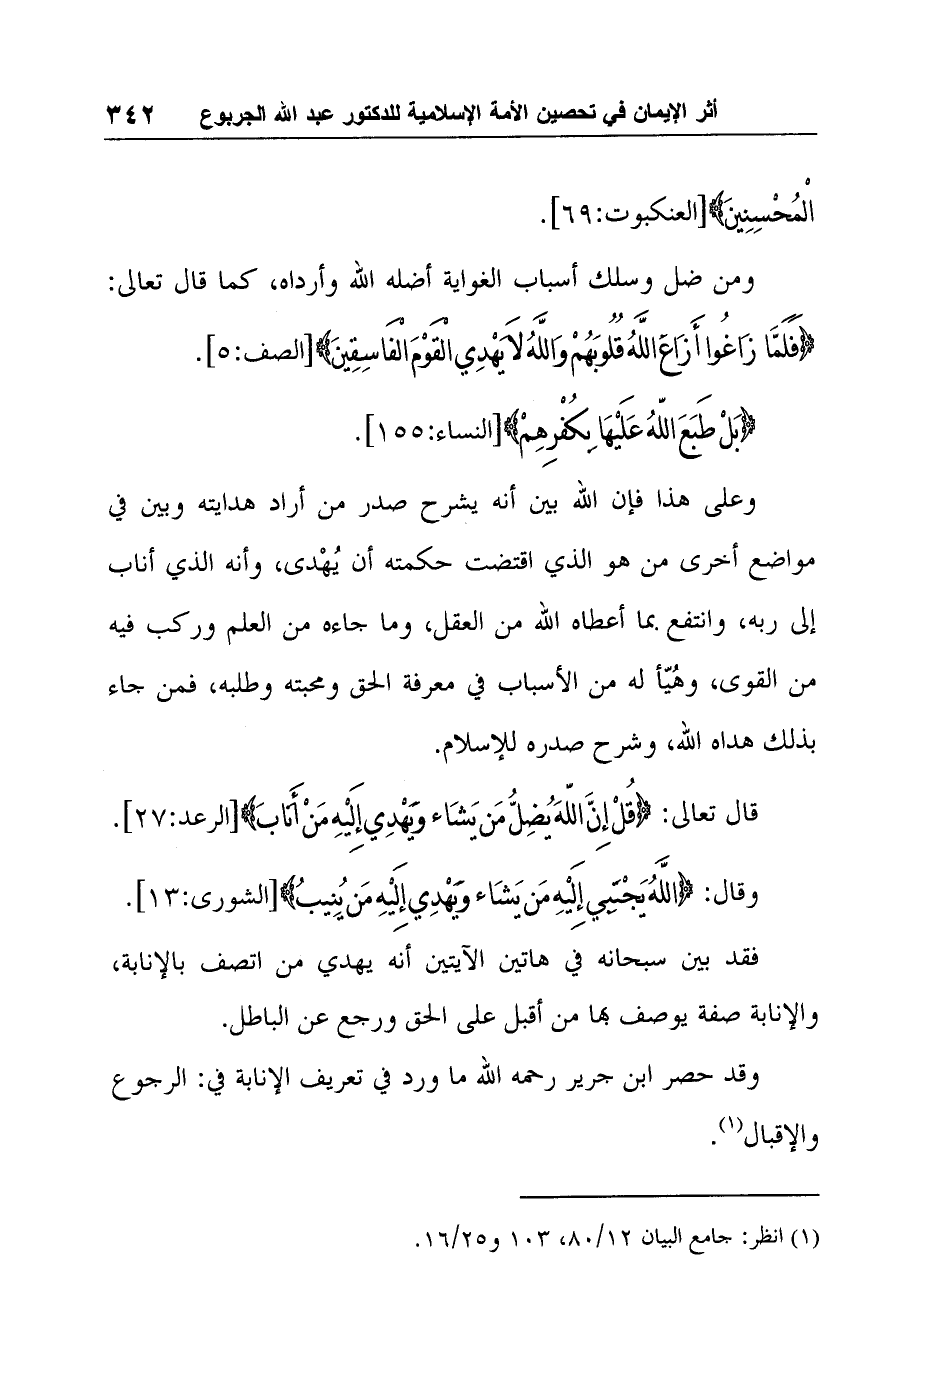 أثر الإيمان في تحصين الأمة الإسلامية للدكتور عبد الله الجربوع ٣٤٢
الْمُحْسِنِينَ﴾[العنكبوت:٦٩].
ومن ضل وسلك أسباب الغواية أضله الله وأرداه، كما قال تعالى:
﴿فَلَمَّا زَاغُوا أَزَاغَ اللَّهُ قُلُوبَهُمْ وَاللَّهُ لاَ يَهْدِي الْقَوْمَ الْفَاسِقِينَ﴾[الصف:٥].
﴿بَلْ طَبَعَ اللَّهُ عَلَيْهَا بِكُفْرِهِمْ﴾[النساء:١٥٥].
وعلى هذا فإن الله بين أنه يشرح صدر من أراد هدايته وبين في
مواضع أخرى من هو الذي اقتضت حكمته أن يُهْدى، وأنه الذي أناب
إلى ربه، وانتفع بما أعطاه الله من العقل، وما جاءه من العلم وركب فيه
من القوى، وهُيّأ له من الأسباب في معرفة الحق ومحبته وطلبه، فمن جاء
بذلك هداه الله، وشرح صدره للإسلام.
قال تعالى: ﴿قُلْ إِنَّ اللَّهَ يُضِلُّ مَن يَشَاء وَيَهْدِي إِلَيْهِ مَنْ أَنَابَ﴾[الرعد:٢٧].
وقال: ﴿اللَّهُ يَجْتَبِي إِلَيْهِ مَن يَشَاء وَيَهْدِي إِلَيْهِ مَن يُنِيبُ﴾[الشورى:١٣].
فقد بين سبحانه في هاتين الآيتين أنه يهدي من اتصف بالإنابة،
والإنابة صفة يوصف بها من أقبل على الحق ورجع عن الباطل.
وقد حصر ابن جرير رحمه الله ما ورد في تعريف الإنابة في: الرجوع
والإقبال(١).
(١) انظر: جامع البيان ٨٠/١٢، ١٠٣ و١٦/٢٥.